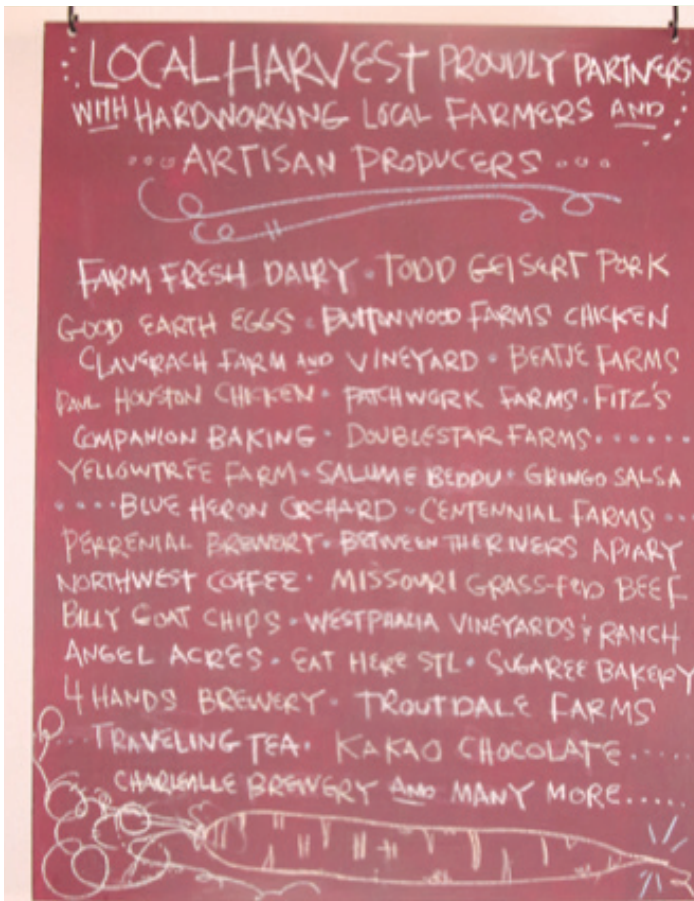 LOCAL HARVEST PROUDLY PARTNERS
WITH HARDWORKING LOCAL FARMERS AND
ARTISAN PRODUCERS
FARM FRESH DAIRY · TODD GEISERT PORK
GOOD EARTH EGGS · BUTTONWOOD FARMS CHICKEN
CLAVERACH FARM AND VINEYARD · BEATJE FARMS
PAUL HOUSTON CHICKEN · PATCHWORK FARMS · FITZ'S
COMPANION BAKING · DOUBLESTAR FARMS
YELLOWTREE FARM · SALUME BEDDU · GRINGO SALSA
BLUE HERON ORCHARD · CENTENNIAL FARMS
PERRENIAL BREWERY · BETWEEN THE RIVERS APIARY
NORTHWEST COFFEE · MISSOURI GRASS-FED BEEF
BILLY GOAT CHIPS · WESTPHALIA VINEYARDS & RANCH
ANGEL ACRES · EAT HERE STL · SUGAREE BAKERY
4 HANDS BREWERY · TROUTDALE FARMS
TRAVELING TEA · KAKAO CHOCOLATE
BREWERY AND MANY MORE.....